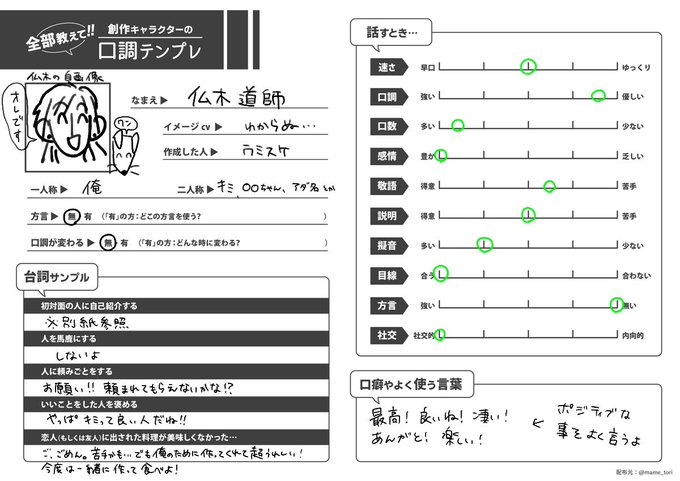 全部教えて!!
創作キャラクターの
口調テンプレ
仏木の自画像
オレです
ワン
なまえ▶ 仏木道師
イメージcv ▶ わからぬ…
作成した人▶ ラミスケ
一人称▶ 俺
二人称▶ キミ、〇〇ちゃん、アダ名とか
方言▶ 無 有 (「有」の方:どこの方言を使う? )
口調が変わる▶ 無 有 (「有」の方:どんな時に変わる? )
台詞サンプル
初対面の人に自己紹介する
※別紙参照
人を馬鹿にする
しないよ
人に頼みごとをする
お願い!! 頼まれてもらえないかな!?
いいことをした人を褒める
やっぱキミって良い人だね!!
恋人(もしくは友人)に出された料理が美味しくなかった…
ご、ごめん。苦手かも…でも俺のために作ってくれて超うれしい!
今度は一緒に作って食べよ!
話すとき…
速さ 早口 ゆっくり
口調 強い 優しい
口数 多い 少ない
感情 豊か 乏しい
敬語 得意 苦手
説明 得意 苦手
擬音 多い 少ない
目線 合う 合わない
方言 強い 無い
社交 社交的 内向的
口癖やよく使う言葉
最高! 良いね! 凄い!
あんがと! 楽しい!
ポジティブな
事をよく言うよ
配布元:@mame_tori